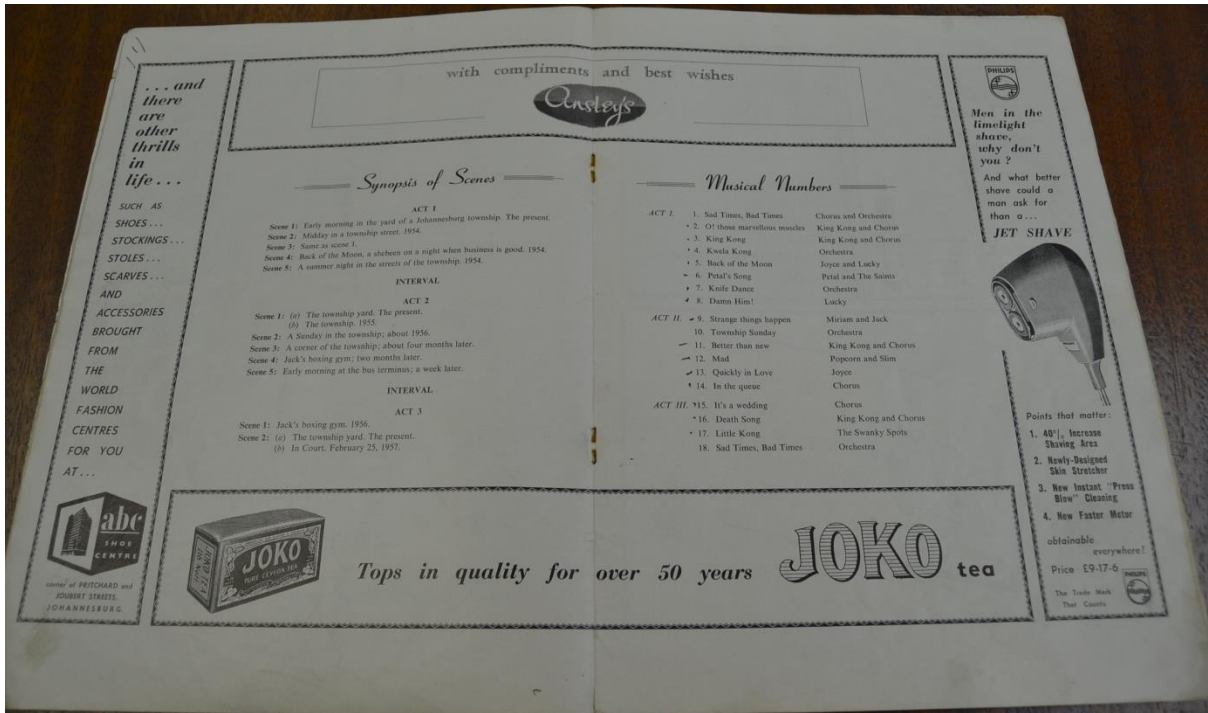 . . . and
there
are
other
thrills
in
life . . .
SUCH AS
SHOES . . .
STOCKINGS . . .
STOLES . . .
SCARVES . . .
AND
ACCESSORIES
BROUGHT
FROM
THE
WORLD
FASHION
CENTRES
FOR YOU
AT . . .
abc
SHOE
CENTRE
corner of PRITCHARD and
JOUBERT STREETS,
JOHANNESBURG.
with compliments and best wishes
Ansley's
Synopsis of Scenes
ACT 1
Scene 1: Early morning in the yard of a Johannesburg township. The present.
Scene 2: Midday in a township street. 1954.
Scene 3: Same as scene 1.
Scene 4: Back of the Moon, a shebeen on a night when business is good. 1954.
Scene 5: A summer night in the streets of the township. 1954.
INTERVAL
ACT 2
Scene 1: (a) The township yard. The present.
(b) The township. 1955.
Scene 2: A Sunday in the township; about 1956.
Scene 3: A corner of the township; about four months later.
Scene 4: Jack's boxing gym; two months later.
Scene 5: Early morning at the bus terminus; a week later.
INTERVAL
ACT 3
Scene 1: Jack's boxing gym. 1956.
Scene 2: (a) The township yard. The present.
(b) In Court. February 25, 1957.
Musical Numbers
ACT I. 1. Sad Times, Bad Times Chorus and Orchestra
2. O! those marvellous muscles King Kong and Chorus
3. King Kong King Kong and Chorus
4. Kwela Kong Orchestra
5. Back of the Moon Joyce and Lucky
6. Petal's Song Petal and The Saints
7. Knife Dance Orchestra
8. Damn Him! Lucky
ACT II. 9. Strange things happen Miriam and Jack
10. Township Sunday Orchestra
11. Better than new King Kong and Chorus
12. Mad Popcorn and Slim
13. Quickly in Love Joyce
14. In the queue Chorus
ACT III. 15. It's a wedding Chorus
16. Death Song King Kong and Chorus
17. Little Kong The Swanky Spots
18. Sad Times, Bad Times Orchestra
JOKO
PURE CEYLON TEA
Tops in quality for over 50 years
JOKO tea
PHILIPS
Men in the
limelight
shave,
why don't
you ?
And what better
shave could a
man ask for
than a . . .
JET SHAVE
Points that matter:
1. 40°/₀ Increase
Shaving Area
2. Newly-Designed
Skin Stretcher
3. New Instant "Press
Blow" Cleaning
4. New Faster Motor
obtainable
everywhere!
Price £9-17-6
The Trade Mark
That Counts
PHILIPS